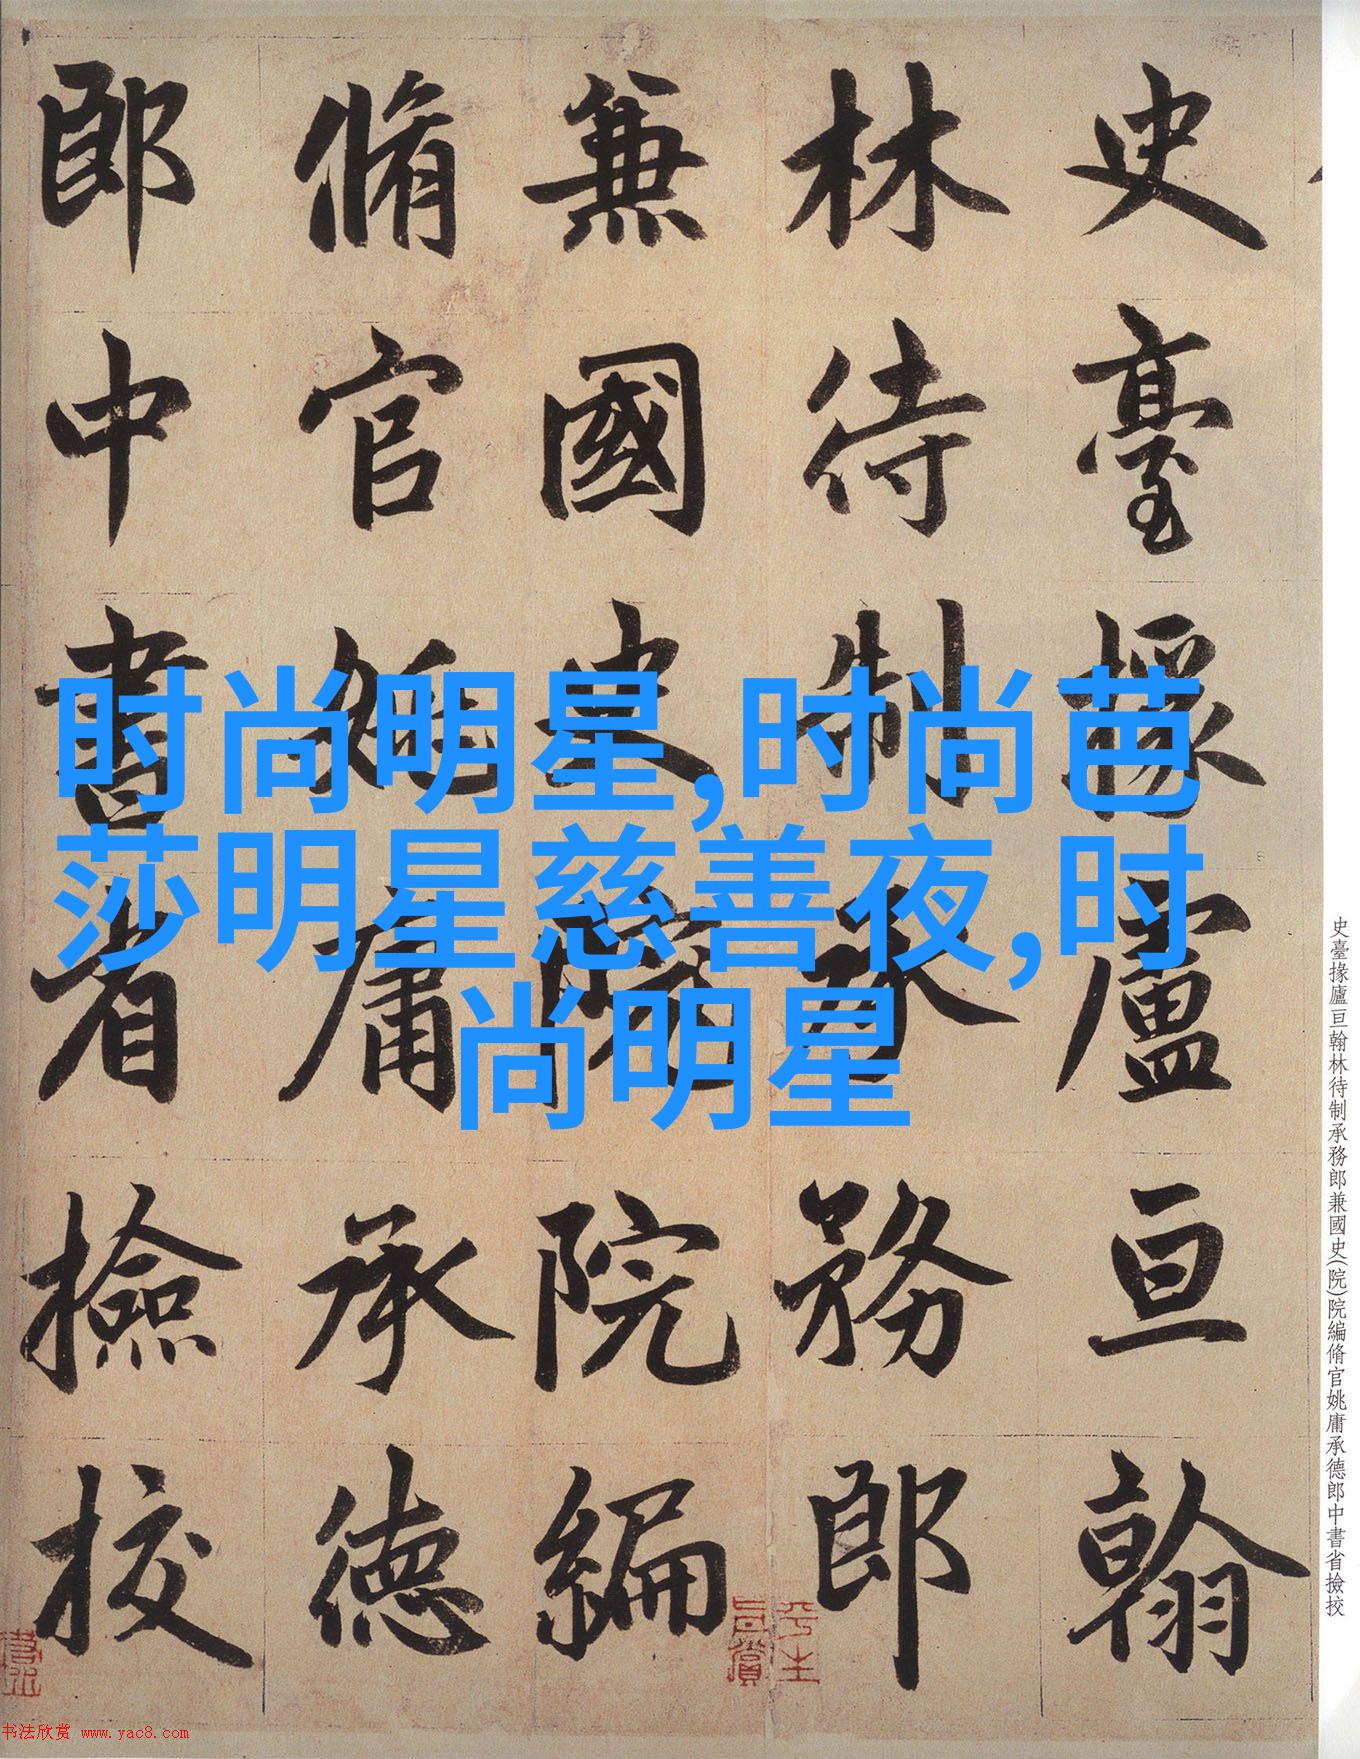 史臺掾盧亘翰
林待制承務郎
兼國史院院編
脩官姚庸承德
郎中書省撿挍
时尚明星,时尚芭
莎明星慈善夜,时
尚明星
史臺掾盧亘翰林待制承務郎兼國史(院)院編脩官姚庸承德郎中書省撿挍
书法欣赏 www.yac8.com